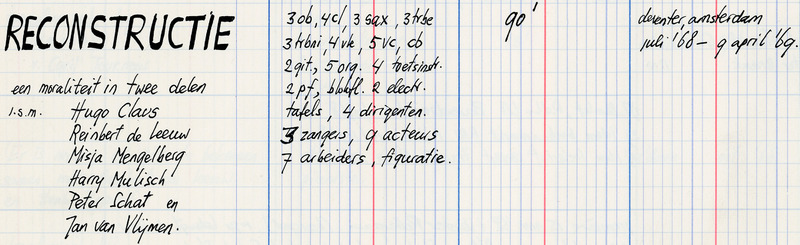 RECONSTRUCTIE
een moraliteit in twee delen
i.s.m. Hugo Claus
Reinbert de Leeuw
Misja Mengelberg
Harry Mulisch
Peter Schat en
Jan van Vlijmen.
3 ob, 4 cl, 3 sax, 3 trbe
3 trbni, 4 vle, 5 vc, cb
2 git., 5 org. 4 toetsinstr.
2 pf, blokfl. 2 electr.
tafels, 4 dirigenten.
3 zangers, 9 acteurs
7 arbeiders, figuratie.
90'
deventer, amsterdam
juli '68 – 9 april '69.